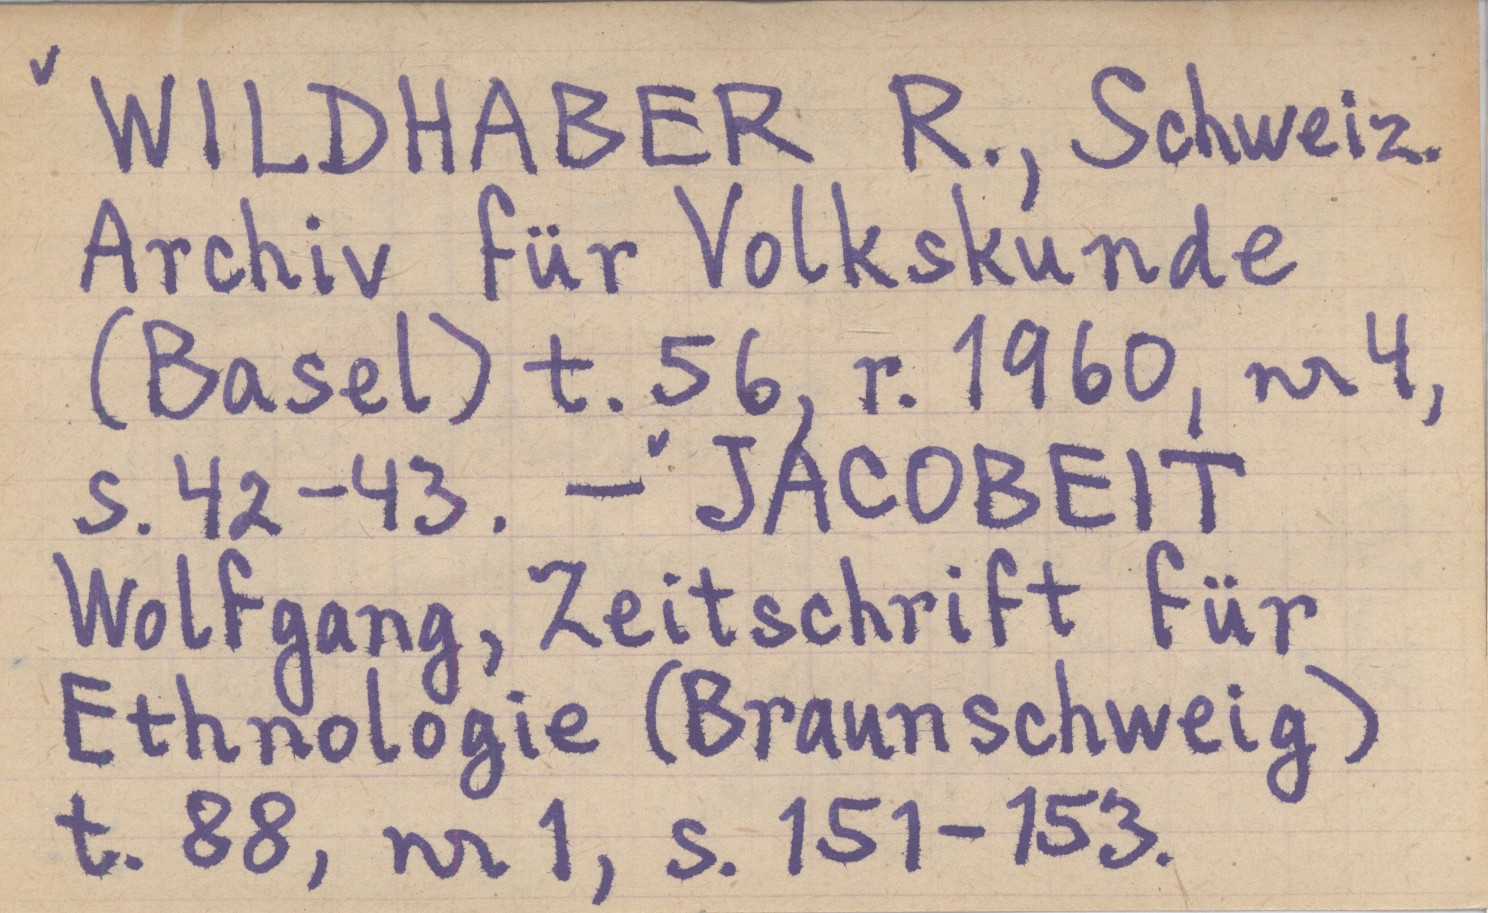 ✓ WILDHABER R., Schweiz.
Archiv für Volkskunde
(Basel) t. 56, r. 1960, nr 4,
s. 42-43. — ✓ JACOBEIT
Wolfgang, Zeitschrift für
Ethnologie (Braunschweig)
t. 88, nr 1, s. 151-153.